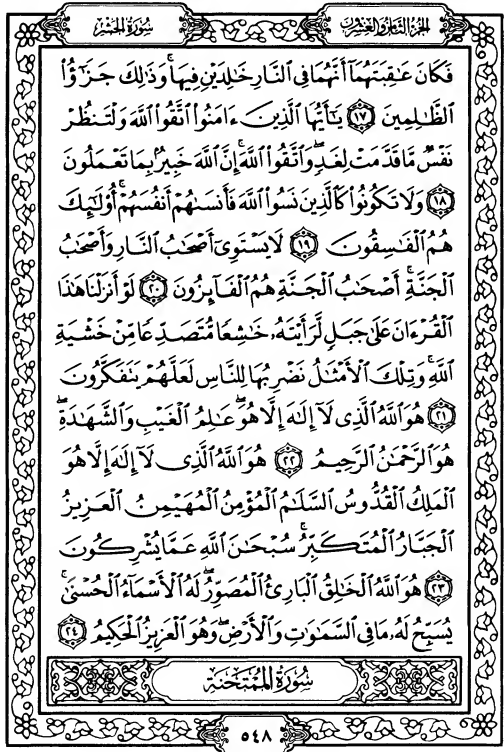 الجزء الثامن والعشرون
سورة الحشر
فَكَانَ عَٰقِبَتَهُمَآ أَنَّهُمَا فِى ٱلنَّارِ خَٰلِدَيْنِ فِيهَا ۚ وَذَٰلِكَ جَزَٰٓؤُا۟
ٱلظَّٰلِمِينَ ١٧ يَٰٓأَيُّهَا ٱلَّذِينَ ءَامَنُوا۟ ٱتَّقُوا۟ ٱللَّهَ وَلْتَنظُرْ
نَفْسٌ مَّا قَدَّمَتْ لِغَدٍ ۖ وَٱتَّقُوا۟ ٱللَّهَ ۚ إِنَّ ٱللَّهَ خَبِيرٌۢ بِمَا تَعْمَلُونَ
١٨ وَلَا تَكُونُوا۟ كَٱلَّذِينَ نَسُوا۟ ٱللَّهَ فَأَنسَىٰهُمْ أَنفُسَهُمْ ۚ أُو۟لَٰٓئِكَ
هُمُ ٱلْفَٰسِقُونَ ١٩ لَا يَسْتَوِىٓ أَصْحَٰبُ ٱلنَّارِ وَأَصْحَٰبُ
ٱلْجَنَّةِ ۚ أَصْحَٰبُ ٱلْجَنَّةِ هُمُ ٱلْفَآئِزُونَ ٢٠ لَوْ أَنزَلْنَا هَٰذَا
ٱلْقُرْءَانَ عَلَىٰ جَبَلٍ لَّرَأَيْتَهُۥ خَٰشِعًا مُّتَصَدِّعًا مِّنْ خَشْيَةِ
ٱللَّهِ ۚ وَتِلْكَ ٱلْأَمْثَٰلُ نَضْرِبُهَا لِلنَّاسِ لَعَلَّهُمْ يَتَفَكَّرُونَ
٢١ هُوَ ٱللَّهُ ٱلَّذِى لَآ إِلَٰهَ إِلَّا هُوَ ۖ عَٰلِمُ ٱلْغَيْبِ وَٱلشَّهَٰدَةِ ۖ
هُوَ ٱلرَّحْمَٰنُ ٱلرَّحِيمُ ٢٢ هُوَ ٱللَّهُ ٱلَّذِى لَآ إِلَٰهَ إِلَّا هُوَ
ٱلْمَلِكُ ٱلْقُدُّوسُ ٱلسَّلَٰمُ ٱلْمُؤْمِنُ ٱلْمُهَيْمِنُ ٱلْعَزِيزُ
ٱلْجَبَّارُ ٱلْمُتَكَبِّرُ ۚ سُبْحَٰنَ ٱللَّهِ عَمَّا يُشْرِكُونَ
٢٣ هُوَ ٱللَّهُ ٱلْخَٰلِقُ ٱلْبَارِئُ ٱلْمُصَوِّرُ ۖ لَهُ ٱلْأَسْمَآءُ ٱلْحُسْنَىٰ ۚ
يُسَبِّحُ لَهُۥ مَا فِى ٱلسَّمَٰوَٰتِ وَٱلْأَرْضِ ۖ وَهُوَ ٱلْعَزِيزُ ٱلْحَكِيمُ ٢٤
سُورَةُ ٱلْمُمْتَحَنَةِ
٥٤٨